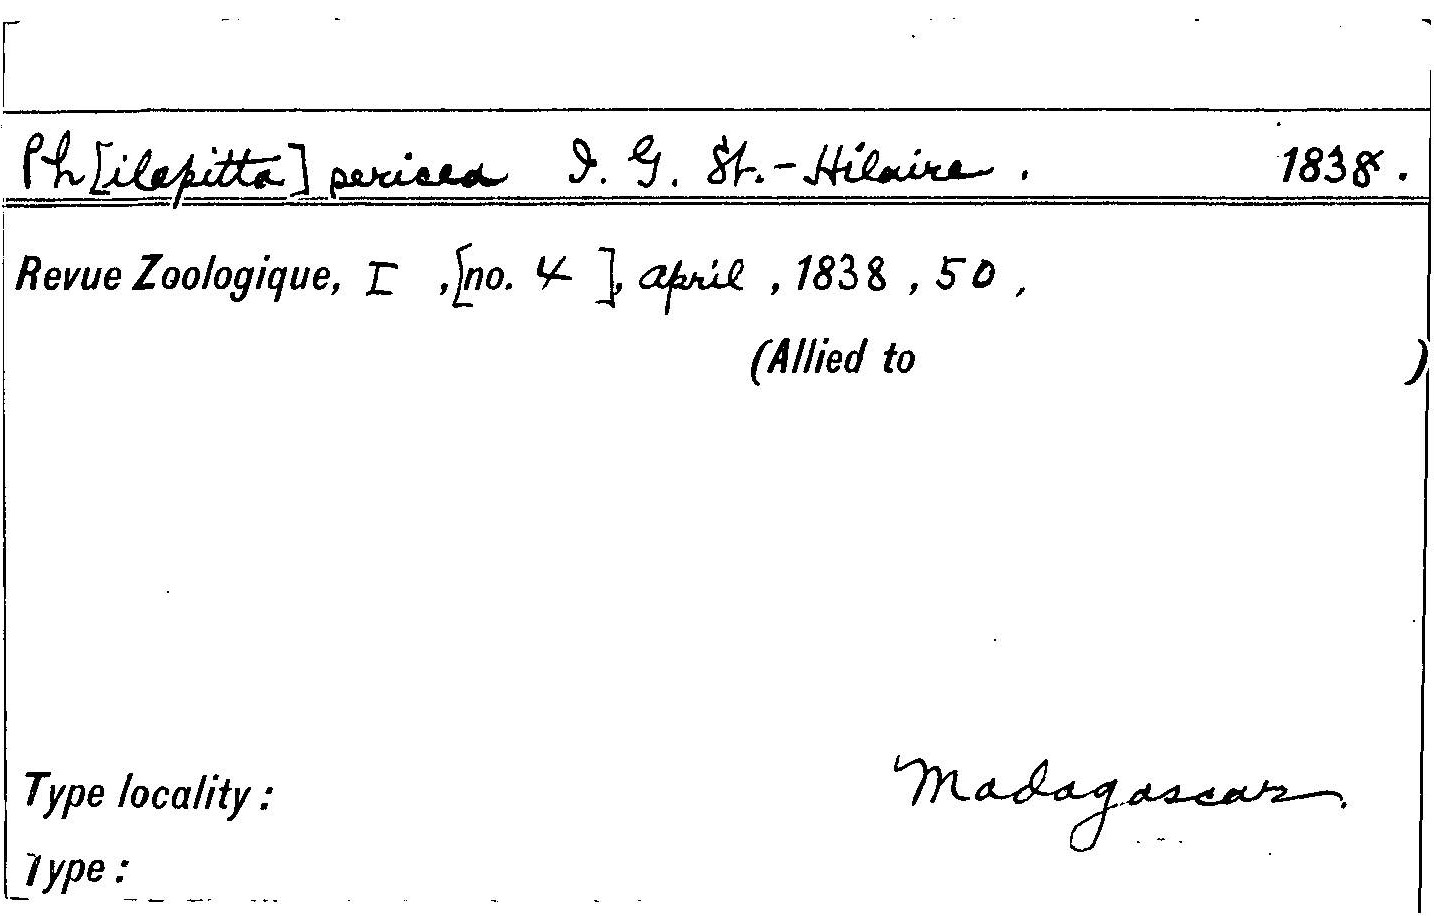 Ph[ilepitta] sericea I. G. St.-Hilaire. 1838.
Revue Zoologique, I, [no. 4], April, 1838, 50,
(Allied to )
Type locality: Madagascar.
Type: